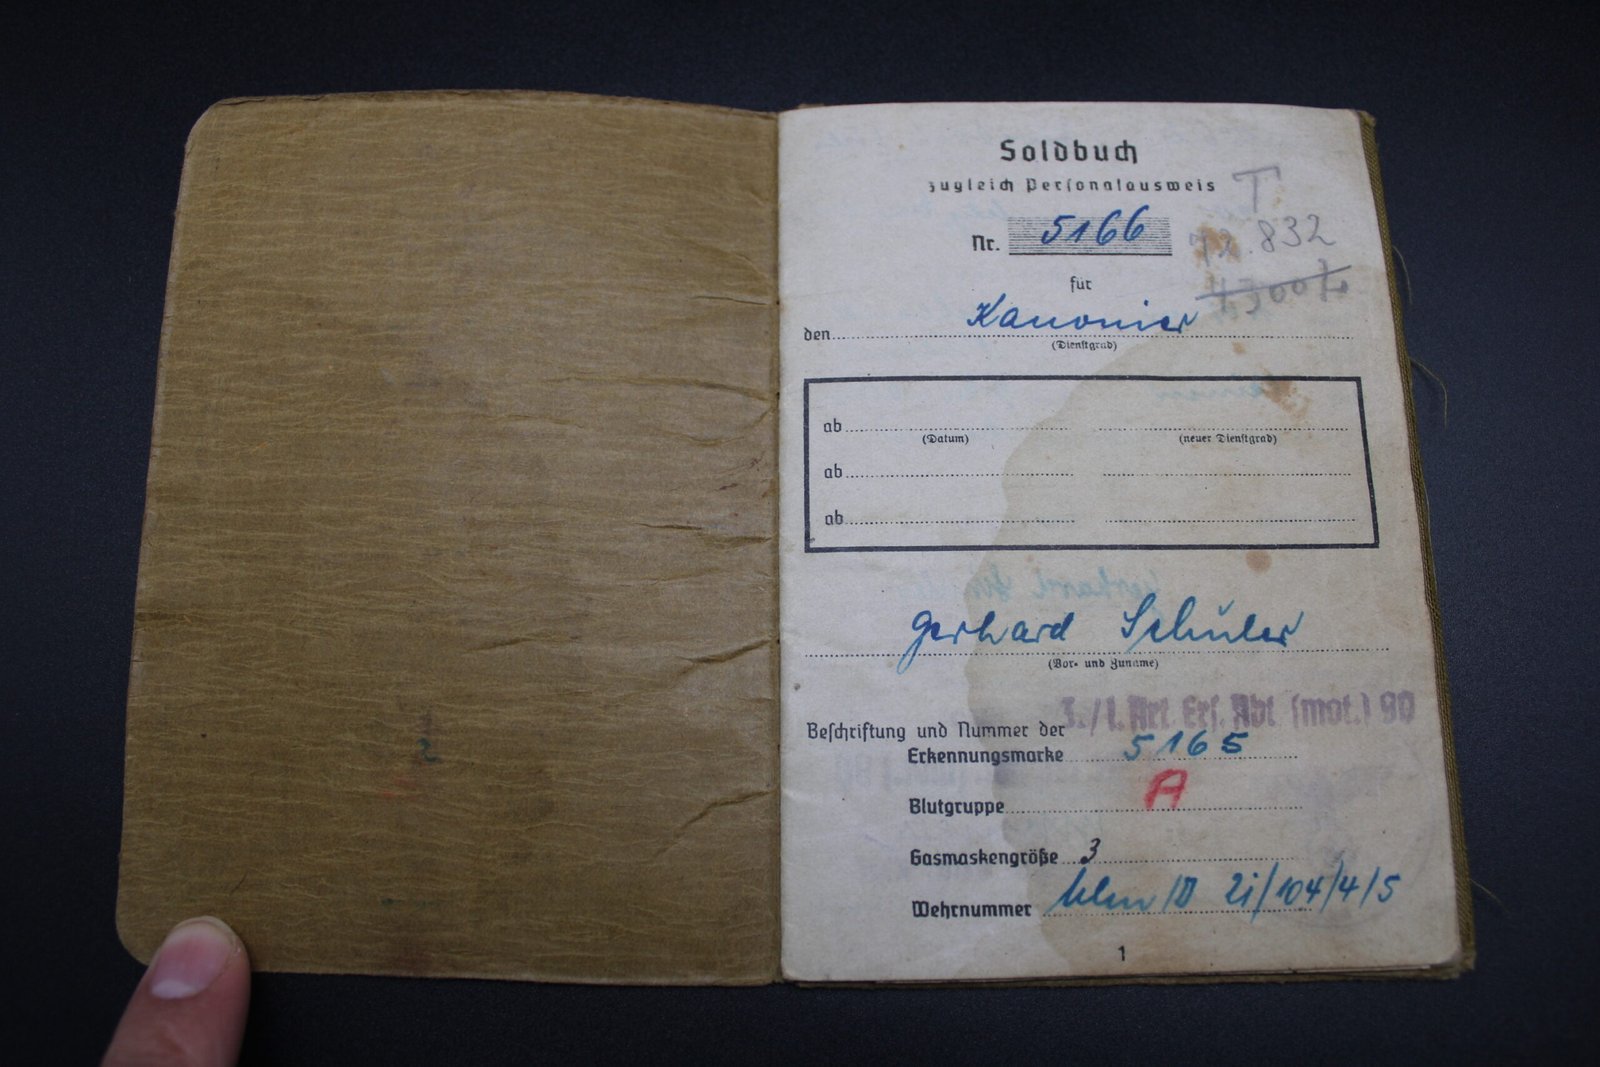 Soldbuch
zugleich Personalausweis
T
Nr. 5166
72.832
für
den Kanonier
(Dienstgrad)
ab
(Datum) (neuer Dienstgrad)
ab
ab
Gerhard Schüler
(Vor- und Zuname)
3./l. Art. Ers. Abt. (mot.) 90
Beschriftung und Nummer der
Erkennungsmarke 5165
Blutgruppe A
Gasmaskengröße 3
Wehrnummer Ulm/D 21/104/4/5
1